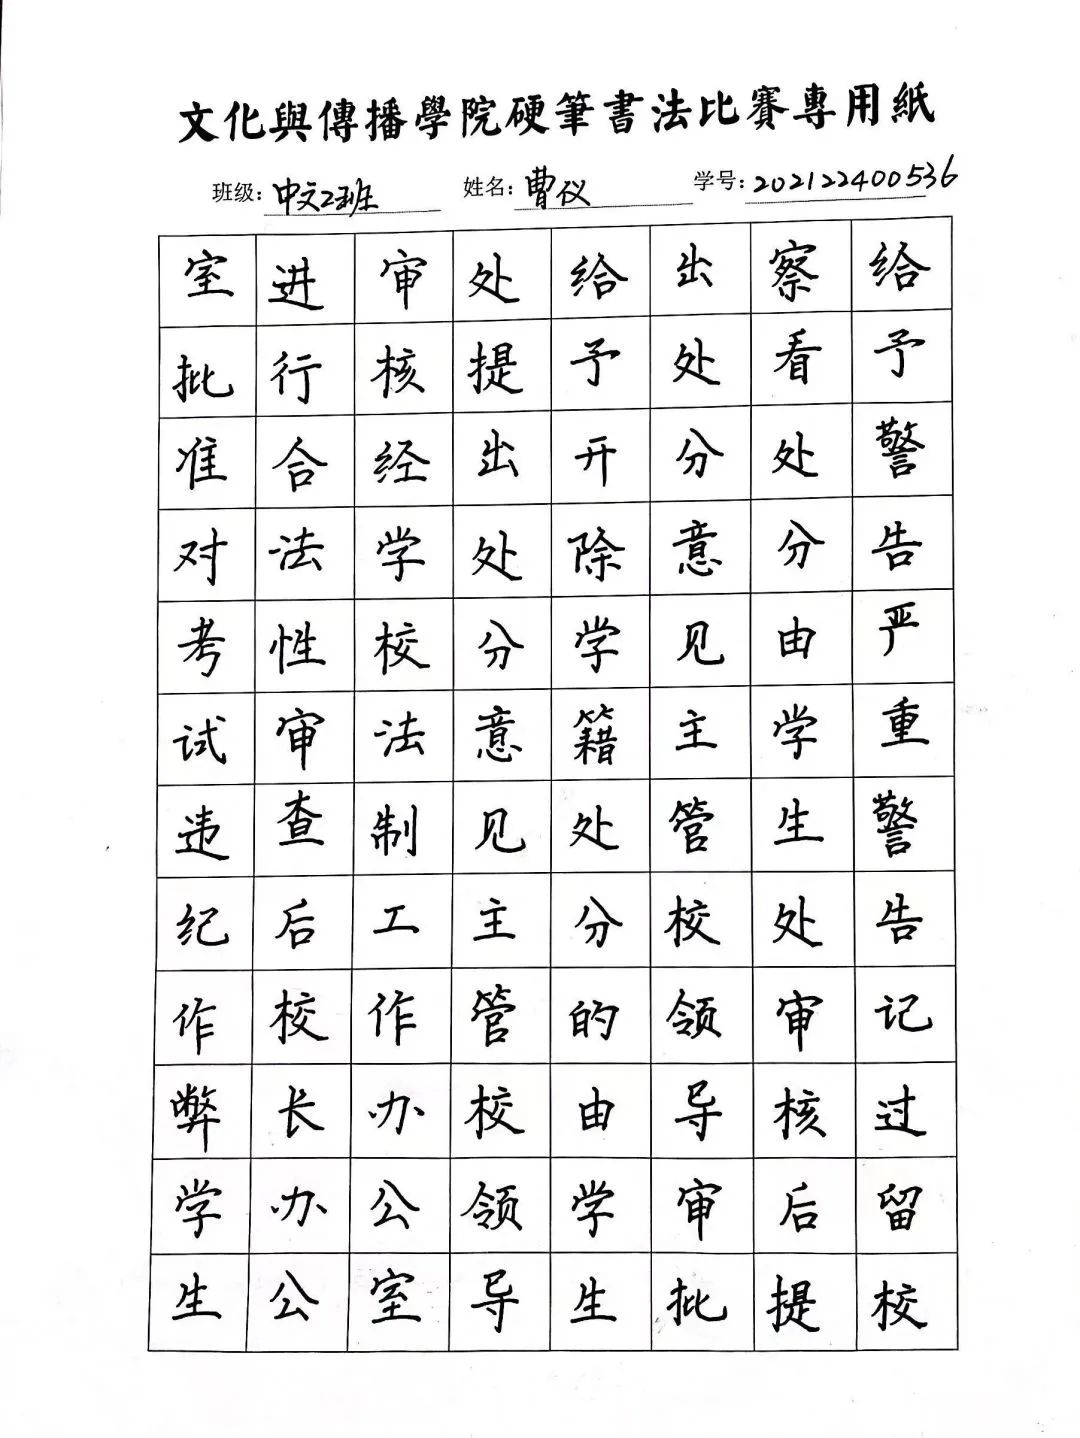 文化與傳播學院硬筆書法比賽專用紙
班级：中文2班 姓名：曹仪 学号：202122400536
给予警告严重警告记过留校
察看处分由学生处审核后提
出处分意见主管校领导审批
给予开除学籍处分的由学生
处提出处分意见主管校领导
审核经学校法制工作办公室
进行合法性审查后校长办公
室批准对考试违纪作弊学生